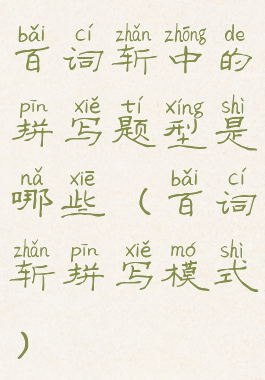 bǎi cí zhǎn zhōng de
百词斩中的
pīn xiě tí xíng shì
拼写题型是
nǎ xiē bǎi cí
哪些（百词
zhǎn pīn xiě mó shì
斩拼写模式
）